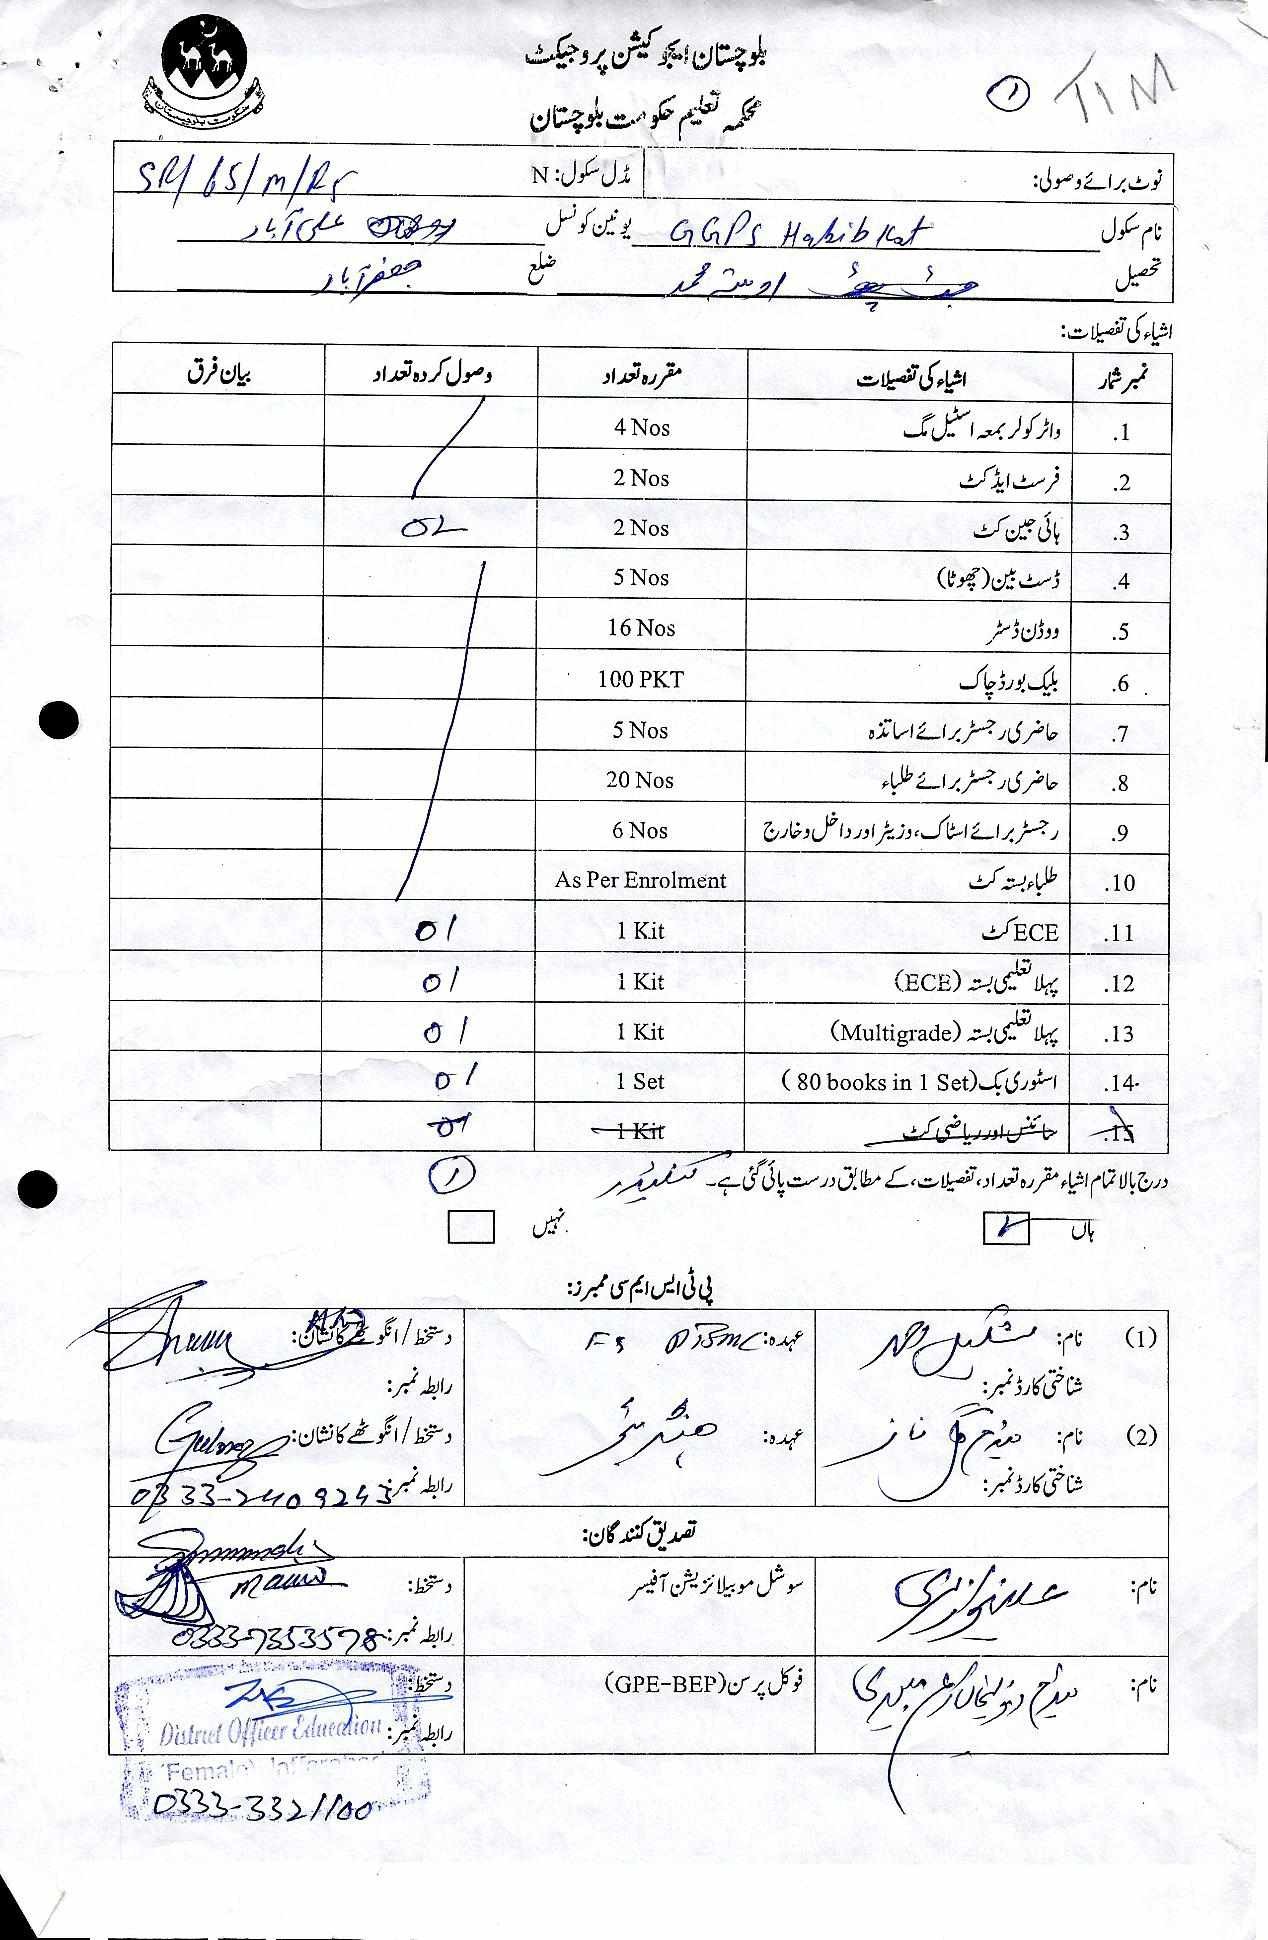 بلوچستان ایجوکیشن پروجیکٹ
محکمہ تعلیم حکومت بلوچستان
① TIM
نوٹ برائے وصولی: مڈل سکول: N SR/65/M/RS
نام سکول GGPS Habib Kot یونین کونسل علی آباد
تحصیل اوستہ محمد ضلع جعفرآباد
اشیاء کی تفصیلات:
نمبر شمار اشیاء کی تفصیلات مقررہ تعداد وصول کردہ تعداد بیان فرق
1. واٹر کولر بمعہ اسٹیل مگ 4 Nos
2. فرسٹ ایڈ کٹ 2 Nos
3. ہائی جین کٹ 2 Nos 02
4. ڈسٹ بین (چھوٹا) 5 Nos
5. ووڈن ڈسٹر 16 Nos
6. بلیک بورڈ چاک 100 PKT
7. حاضری رجسٹر برائے اساتذہ 5 Nos
8. حاضری رجسٹر برائے طلباء 20 Nos
9. رجسٹر برائے اسٹاک، وزیٹر اور داخل و خارج 6 Nos
10. طلباء بستہ کٹ As Per Enrolment
11. ECE کٹ 1 Kit 01
12. پہلا تعلیمی بستہ (ECE) 1 Kit 01
13. پہلا تعلیمی بستہ (Multigrade) 1 Kit 01
14. اسٹوری بک (80 books in 1 Set) 1 Set 01
15. سائنس اور ریاضی کٹ 1 Kit 01
درج بالا تمام اشیاء مقررہ تعداد، تفصیلات، کے مطابق درست پائی گئی ہے۔ ①
ہاں نہیں
پی ٹی ایس ایم سی ممبرز:
(1) نام: شکیل احمد عہدہ: دستخط/انگوٹھے کا نشان:
شناختی کارڈ نمبر: رابطہ نمبر:
(2) نام: میڈم گل ناز عہدہ: دستخط/انگوٹھے کا نشان: Gulnaz
شناختی کارڈ نمبر: رابطہ نمبر: 0333-2409243
تصدیق کنندگان:
نام: سوشل موبیلائزیشن آفیسر دستخط:
رابطہ نمبر: 0333-7353578
نام: فوکل پرسن (GPE-BEP) دستخط:
رابطہ نمبر:
District Officer Education
(Female) Jaffarabad
0333-3321100